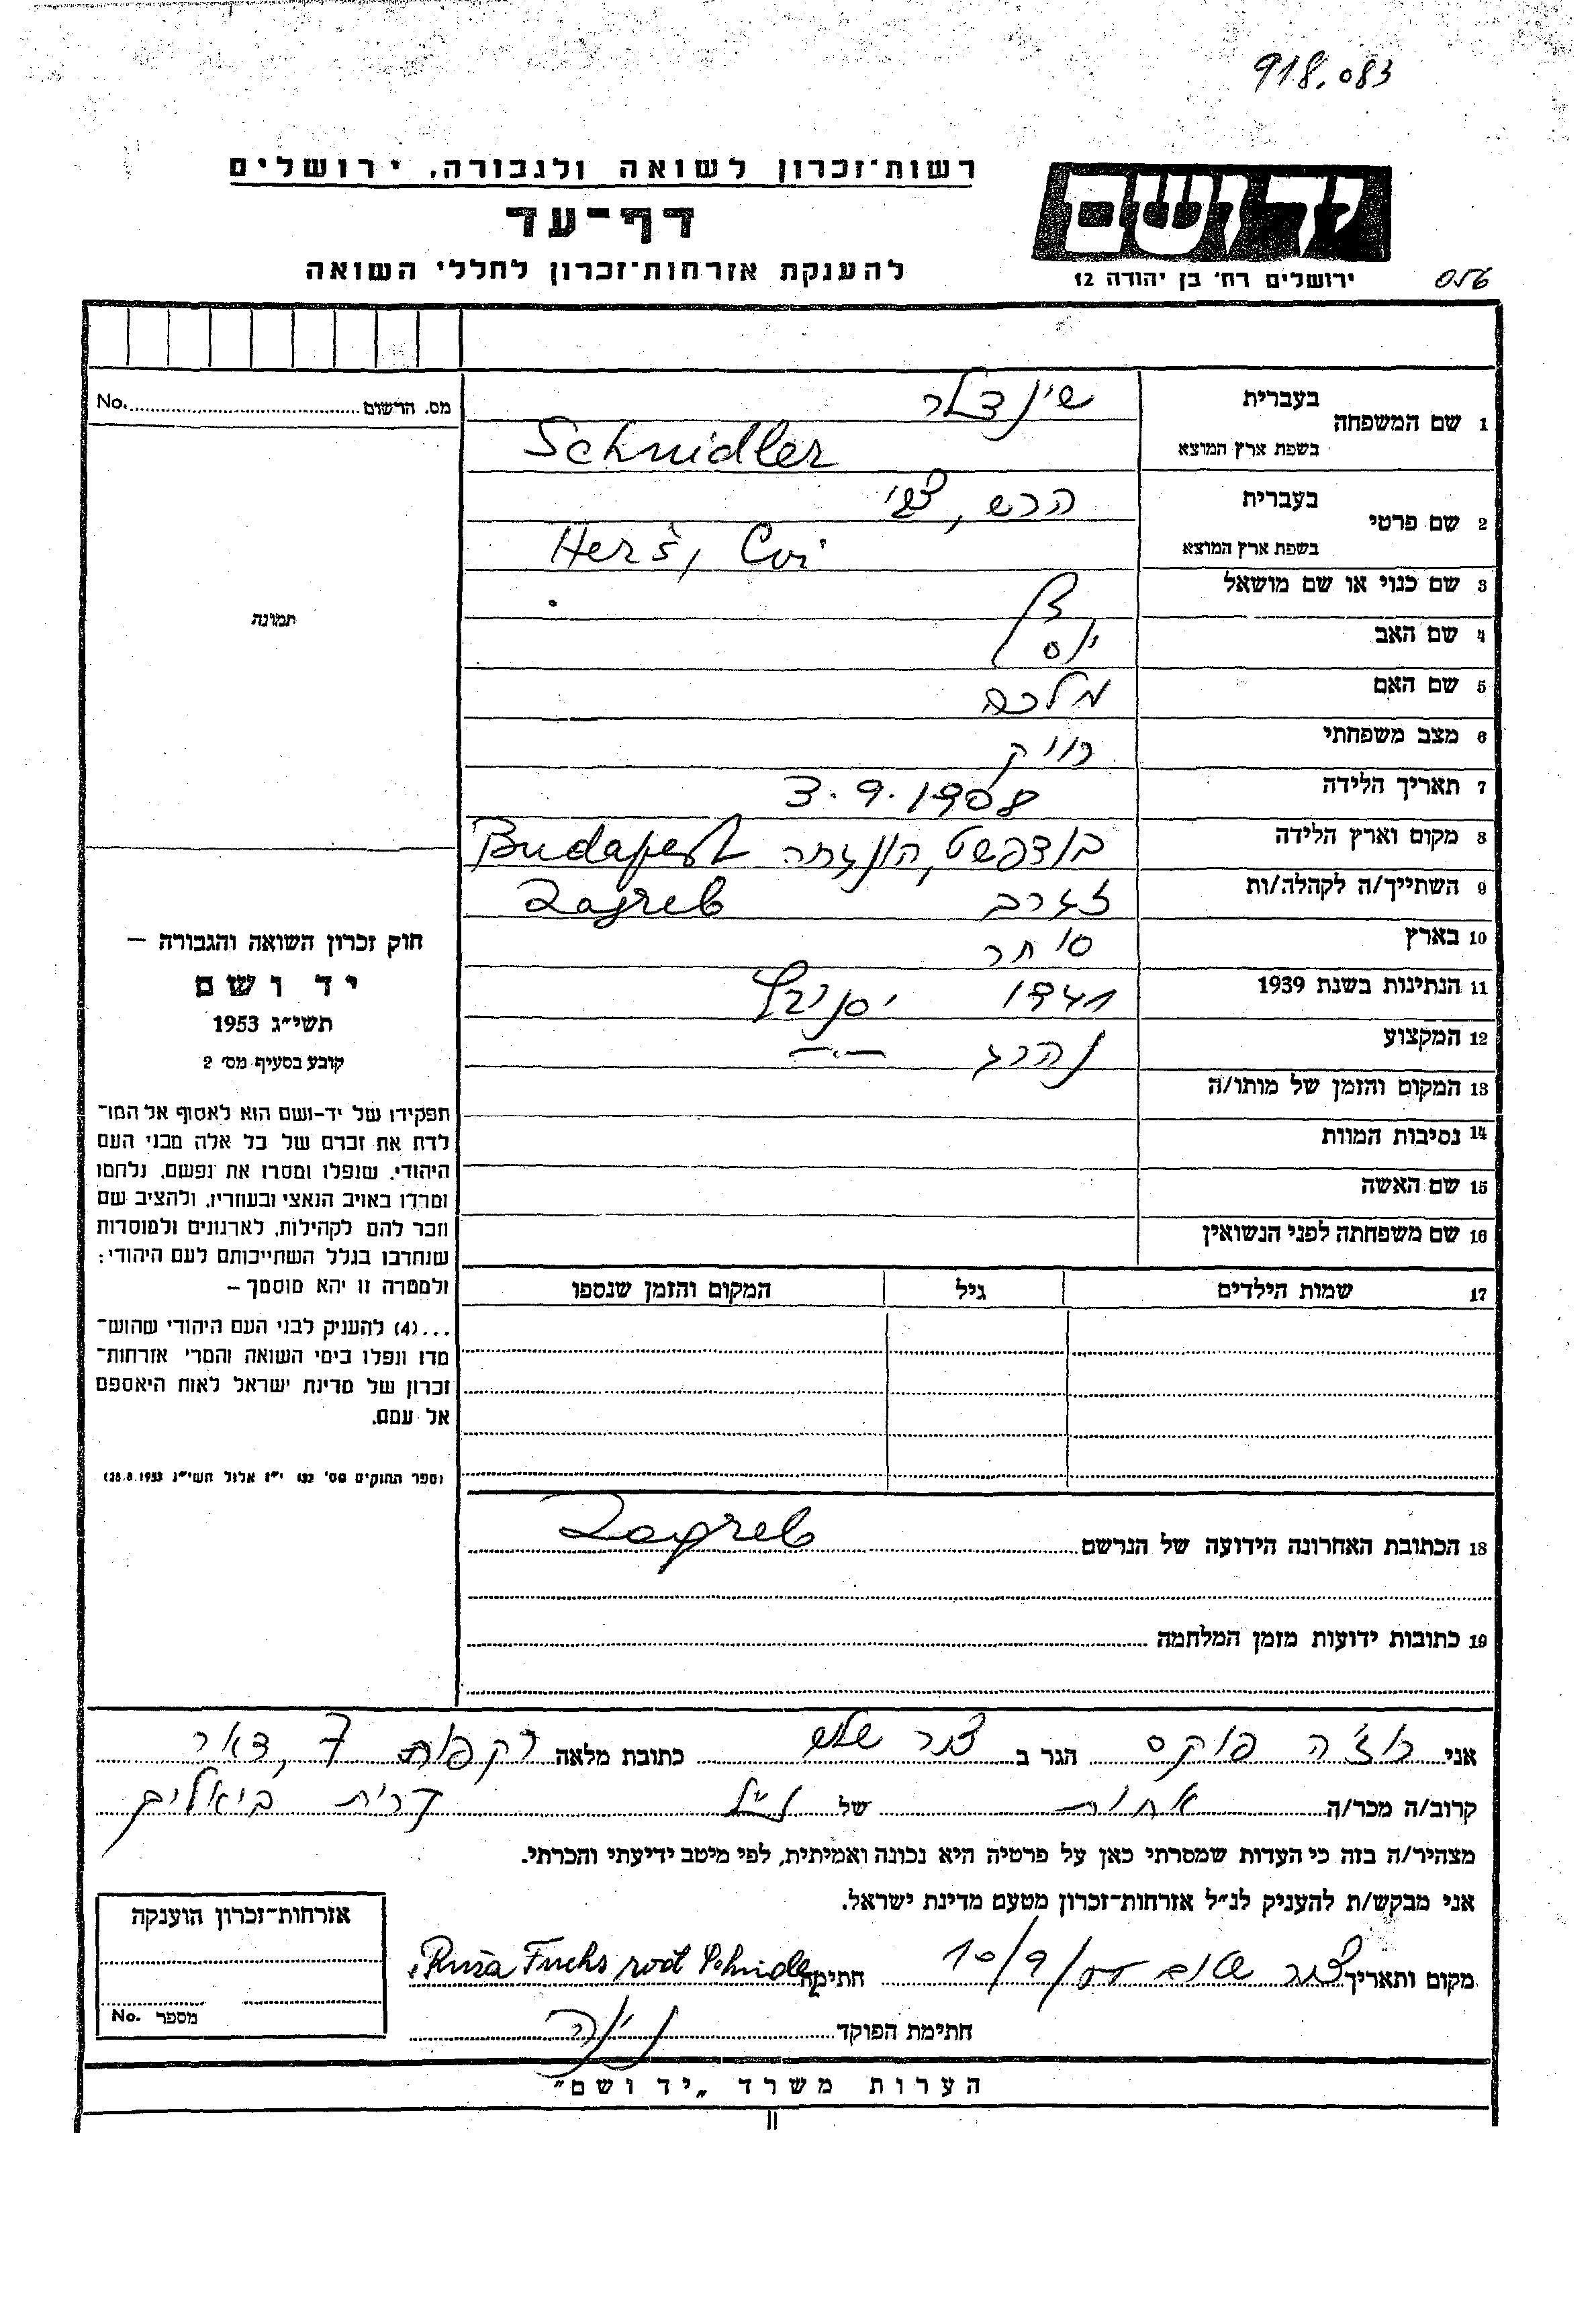 918.083
רשות־זכרון לשואה ולגבורה, ירושלים
דף־עד
להענקת אזרחות־זכרון לחללי השואה
יד ושם
ירושלים רח׳ בן יהודה 12
056
מס. הרשום No.
1 שם המשפחה בעברית שינדלר
בשפת ארץ המוצא Schnidler
2 שם פרטי בעברית הרש, צבי
בשפת ארץ המוצא Herš, Cvi
3 שם כנוי או שם מושאל
4 שם האב
5 שם האם מלכה
6 מצב משפחתי רווק
7 תאריך הלידה 3.9.1908
8 מקום וארץ הלידה בודפשט, הונגריה Budapest
9 השתייך/ה לקהלה/ות זגרב Zagreb
10 בארץ סוחר
11 הנתינות בשנת 1939 1941
12 המקצוע נהרג
13 המקום והזמן של מותו/ה
14 נסיבות המוות
15 שם האשה
16 שם משפחתה לפני הנשואין
17 שמות הילדים גיל המקום והזמן שנספו
תמונה
חוק זכרון השואה והגבורה –
יד ושם
תשי״ג 1953
קובע בסעיף מס׳ 2
תפקידו של יד-ושם הוא לאסוף אל המו־
לדת את זכרם של כל אלה מבני העם
היהודי, שנפלו ומסרו את נפשם, נלחמו
ומרדו באויב הנאצי ובעוזריו, ולהציב שם
וזכר להם לקהילות, לארגונים ולמוסדות
שנחרבו בגלל השתייכותם לעם היהודי:
ולמטרה זו יהא מוסמך –
...(4) להעניק לבני העם היהודי שהוש־
מדו ונפלו בימי השואה והמרי אזרחות־
זכרון של מדינת ישראל לאות היאספם
אל עמם.
(ספר החוקים מס׳ 132 י״ז אלול תשי״ג 28.8.1953)
18 הכתובת האחרונה הידועה של הנרשם Zagreb
19 כתובות ידועות מזמן המלחמה
אני רוז׳ה פוקס הגר ב צור שלום כתובת מלאה רקפות 7, דואר
קרוב/ה מכר/ה אחות של נ״ל קרית ביאליק
מצהיר/ה בזה כי העדות שמסרתי כאן על פרטיה היא נכונה ואמיתית, לפי מיטב ידיעתי והכרתי.
אני מבקש/ת להעניק לנ״ל אזרחות־זכרון מטעם מדינת ישראל.
מקום ותאריך צור שלום 10/9/ חתימה Ruža Fuchs rod Schnidler
חתימת הפוקד
אזרחות־זכרון הוענקה
מספר No.
הערות משרד „יד ושם״